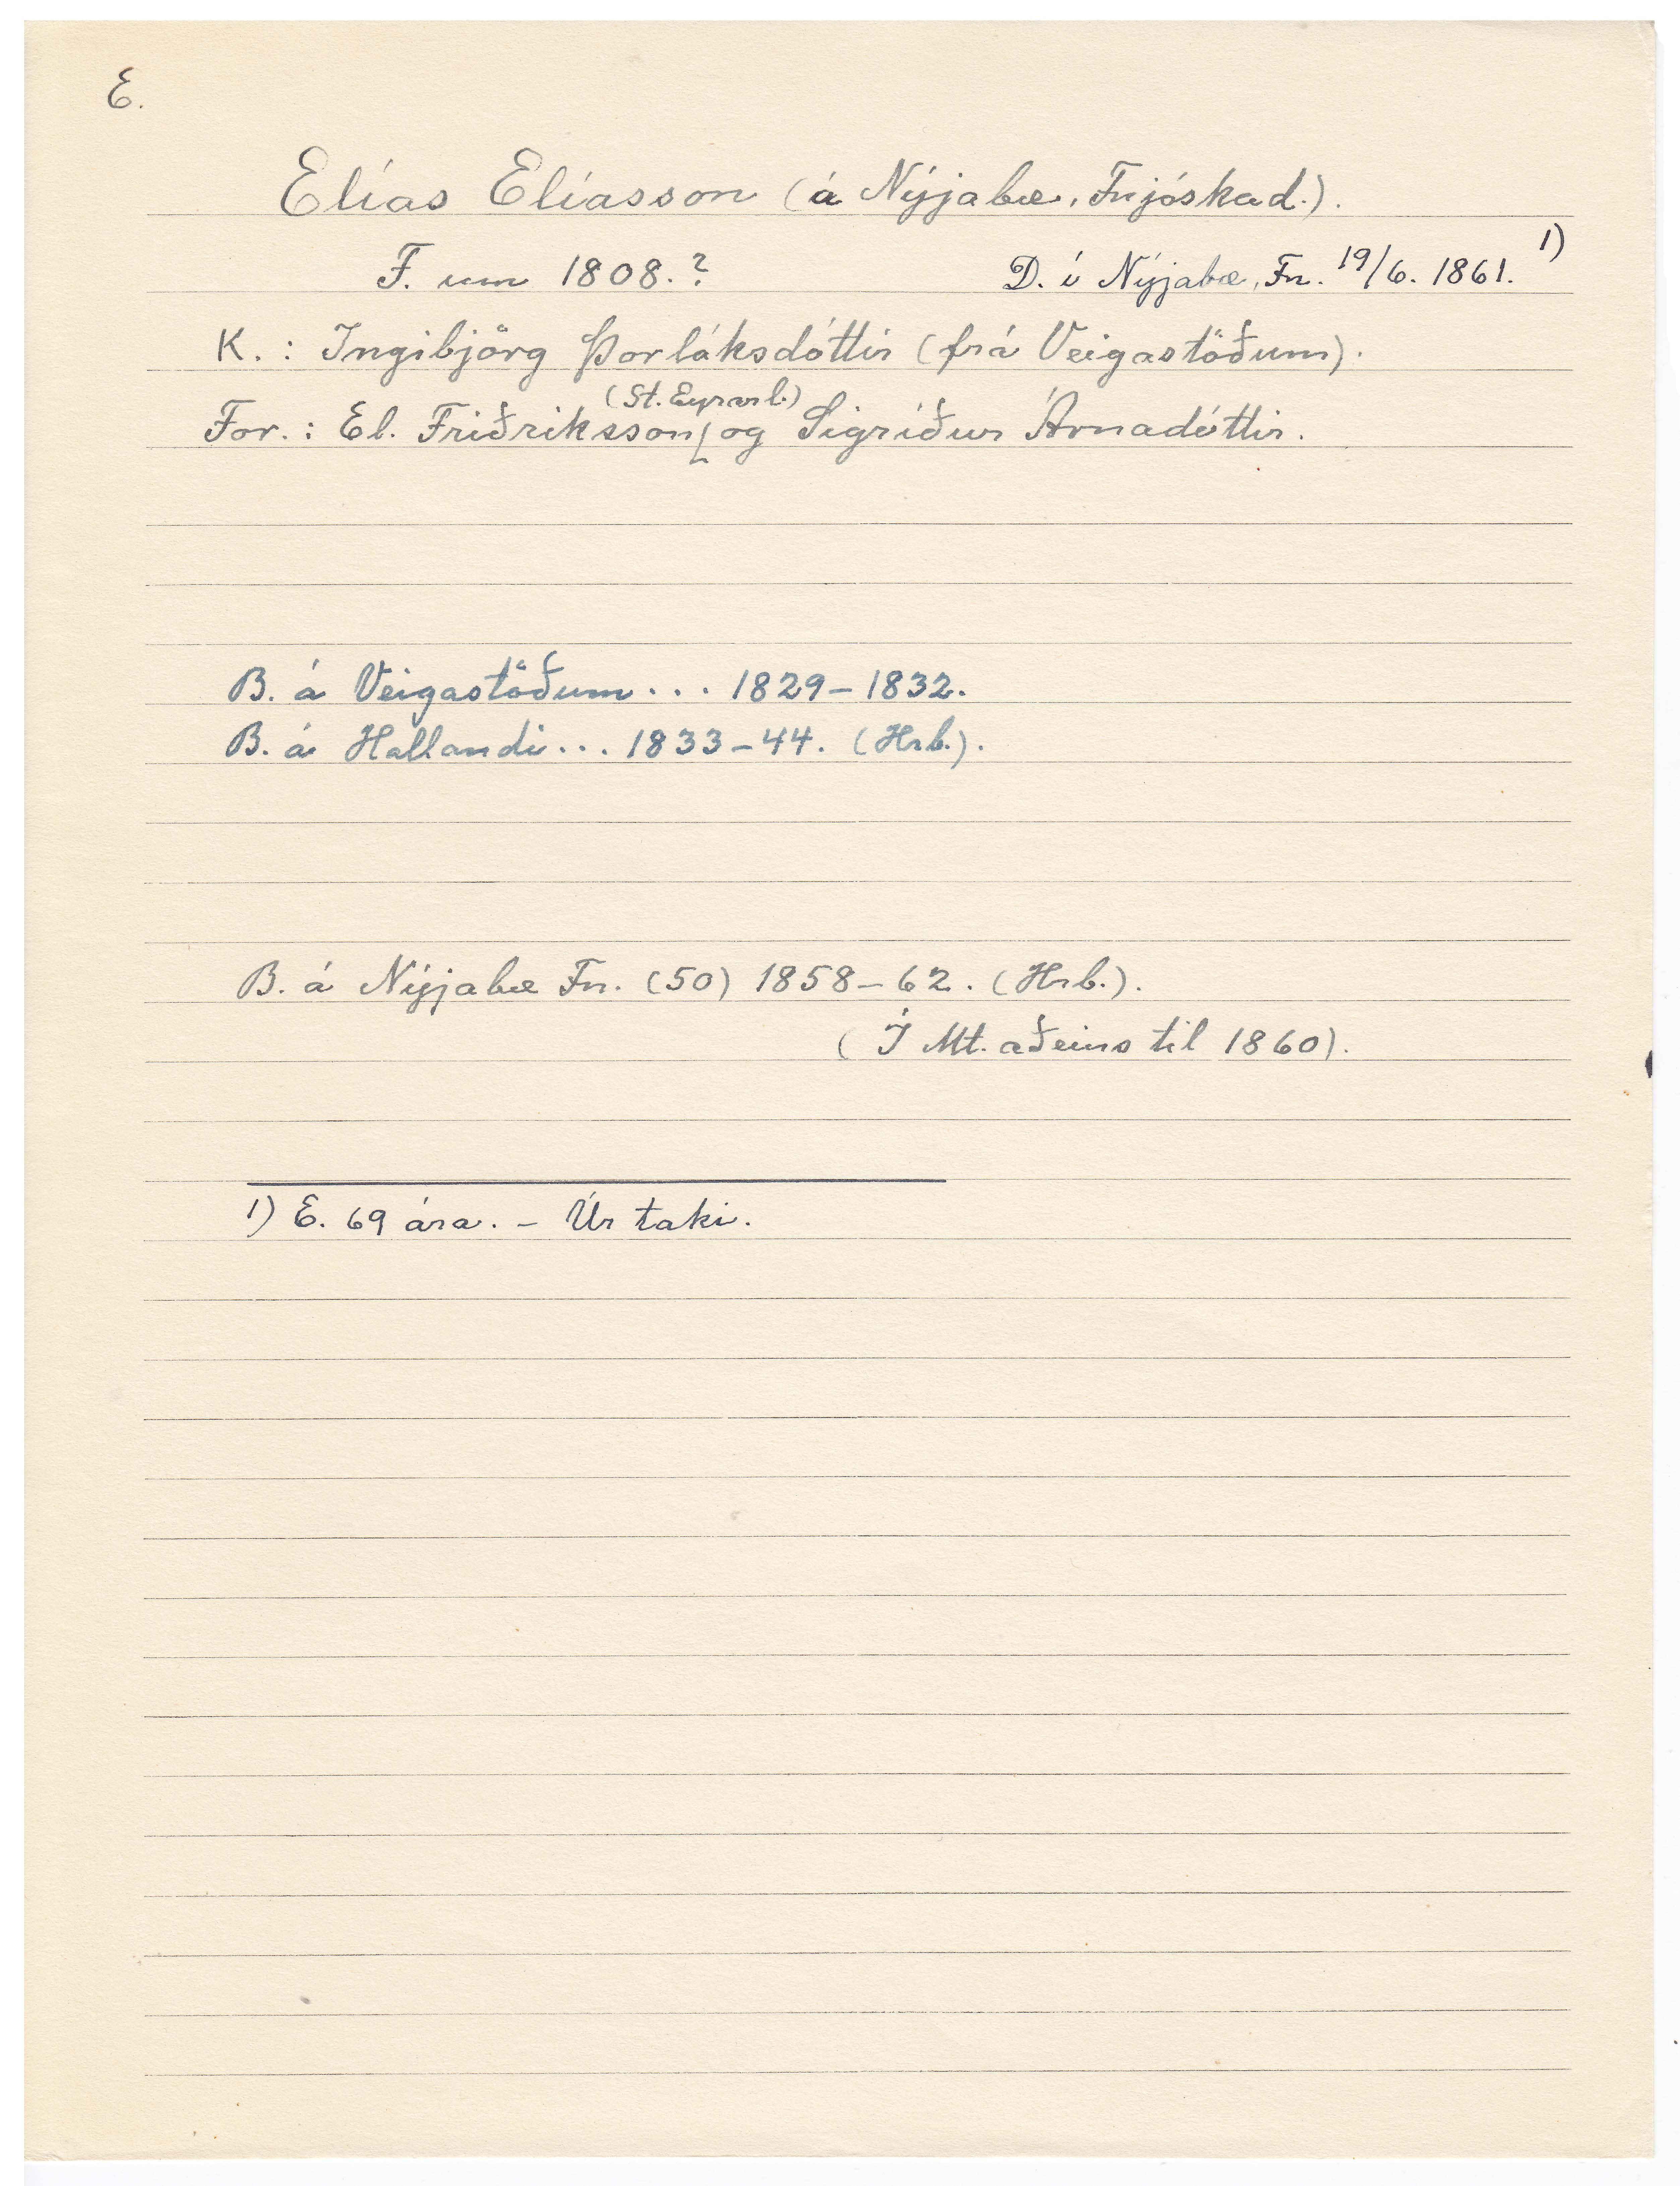 E.
Elías Elíasson (á Nýjabæ, Fnjóskad.).
F. um 1808.? D. í Nýjabæ, Fn. 19/6. 1861. 1)
K. : Ingibjörg Þorláksdóttir (frá Veigastöðum).
(St. Eyrarl.)
For. : El. Friðriksson⌊ og Sigríður Árnadóttir.
B. á Veigastöðum . . . 1829–1832.
B. á Hallandi . . . 1833–44. (Hrb.).
B. á Nýjabæ Fn. (50) 1858–62. (Hrb.).
(Í Mt. aðeins til 1860).
1) E. 69 ára. – Úr taki.